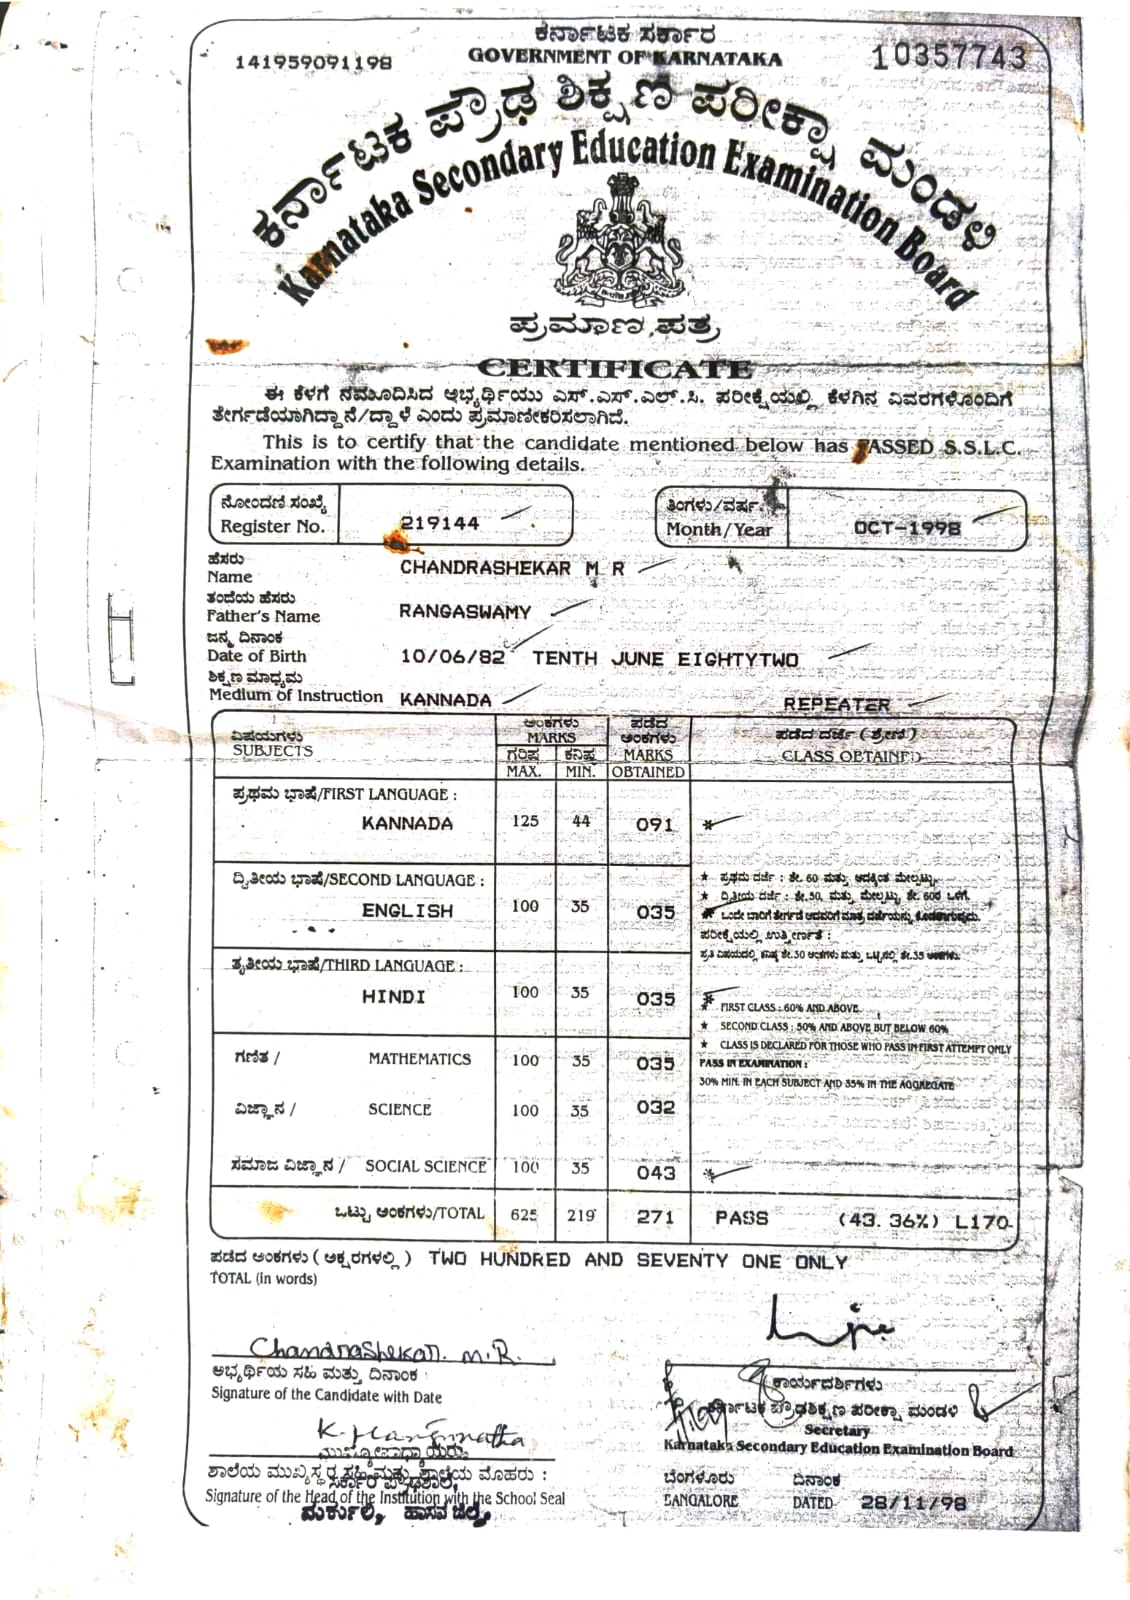 ಕರ್ನಾಟಕ ಸರ್ಕಾರ
141959091198 GOVERNMENT OF KARNATAKA 10357743
ಕರ್ನಾಟಕ ಪ್ರೌಢ ಶಿಕ್ಷಣ ಪರೀಕ್ಷಾ ಮಂಡಳಿ
Karnataka Secondary Education Examination Board
ಪ್ರಮಾಣ ಪತ್ರ
CERTIFICATE
ಈ ಕೆಳಗೆ ನಮೂದಿಸಿದ ಅಭ್ಯರ್ಥಿಯು ಎಸ್.ಎಸ್.ಎಲ್.ಸಿ. ಪರೀಕ್ಷೆಯಲ್ಲಿ ಕೆಳಗಿನ ವಿವರಗಳೊಂದಿಗೆ
ತೇರ್ಗಡೆಯಾಗಿದ್ದಾನೆ/ದ್ದಾಳೆ ಎಂದು ಪ್ರಮಾಣೀಕರಿಸಲಾಗಿದೆ.
This is to certify that the candidate mentioned below has PASSED S.S.L.C.
Examination with the following details.
ನೋಂದಣಿ ಸಂಖ್ಯೆ
Register No. 219144
ತಿಂಗಳು/ವರ್ಷ
Month/Year OCT-1998
ಹೆಸರು
Name CHANDRASHEKAR M R
ತಂದೆಯ ಹೆಸರು
Father's Name RANGASWAMY
ಜನ್ಮ ದಿನಾಂಕ
Date of Birth 10/06/82 TENTH JUNE EIGHTYTWO
ಶಿಕ್ಷಣ ಮಾಧ್ಯಮ
Medium of Instruction KANNADA REPEATER
ವಿಷಯಗಳು ಅಂಕಗಳು ಪಡೆದ ಅಂಕಗಳು ಪಡೆದ ದರ್ಜೆ (ಶ್ರೇಣಿ)
SUBJECTS MARKS MARKS OBTAINED CLASS OBTAINED
ಗರಿಷ್ಠ ಕನಿಷ್ಠ
MAX. MIN.
ಪ್ರಥಮ ಭಾಷೆ/FIRST LANGUAGE :
KANNADA 125 44 091 *
ದ್ವಿತೀಯ ಭಾಷೆ/SECOND LANGUAGE :
ENGLISH 100 35 035
ತೃತೀಯ ಭಾಷೆ/THIRD LANGUAGE :
HINDI 100 35 035 *
ಗಣಿತ / MATHEMATICS 100 35 035
ವಿಜ್ಞಾನ / SCIENCE 100 35 032
ಸಮಾಜ ವಿಜ್ಞಾನ / SOCIAL SCIENCE 100 35 043 *
★ ಪ್ರಥಮ ದರ್ಜೆ : ಶೇ. 60 ಮತ್ತು ಅದಕ್ಕಿಂತ ಮೇಲ್ಪಟ್ಟು
★ ದ್ವಿತೀಯ ದರ್ಜೆ : ಶೇ.50, ಮತ್ತು ಮೇಲ್ಪಟ್ಟು ಶೇ. 60ರ ಒಳಗೆ.
ಪರೀಕ್ಷೆಯಲ್ಲಿ ಉತ್ತೀರ್ಣತೆ :
★ FIRST CLASS : 60% AND ABOVE
★ SECOND CLASS : 50% AND ABOVE BUT BELOW 60%
★ CLASS IS DECLARED FOR THOSE WHO PASS IN FIRST ATTEMPT ONLY
PASS IN EXAMINATION :
30% MIN. IN EACH SUBJECT AND 35% IN THE AGGREGATE
ಒಟ್ಟು ಅಂಕಗಳು/TOTAL 625 219 271 PASS (43.36%) L170
ಪಡೆದ ಅಂಕಗಳು (ಅಕ್ಷರಗಳಲ್ಲಿ) TWO HUNDRED AND SEVENTY ONE ONLY
TOTAL (in words)
Chandrashekar. M.R.
ಅಭ್ಯರ್ಥಿಯ ಸಹಿ ಮತ್ತು ದಿನಾಂಕ
Signature of the Candidate with Date
ಕಾರ್ಯದರ್ಶಿಗಳು
ಕರ್ನಾಟಕ ಪ್ರೌಢಶಿಕ್ಷಣ ಪರೀಕ್ಷಾ ಮಂಡಳಿ
Secretary
Karnataka Secondary Education Examination Board
K. Manjunatha
ಮುಖ್ಯೋಪಾಧ್ಯಾಯರು
ಶಾಲೆಯ ಮುಖ್ಯಸ್ಥರ ಸಹಿ ಮತ್ತು ಶಾಲೆಯ ಮೊಹರು :
ಸರ್ಕಾರಿ ಪ್ರೌಢಶಾಲೆ,
Signature of the Head of the Institution with the School Seal
ಮರ್ಕುಲಿ, ಹಾಸನ ಜಿಲ್ಲೆ,
ಬೆಂಗಳೂರು ದಿನಾಂಕ
BANGALORE DATED 28/11/98